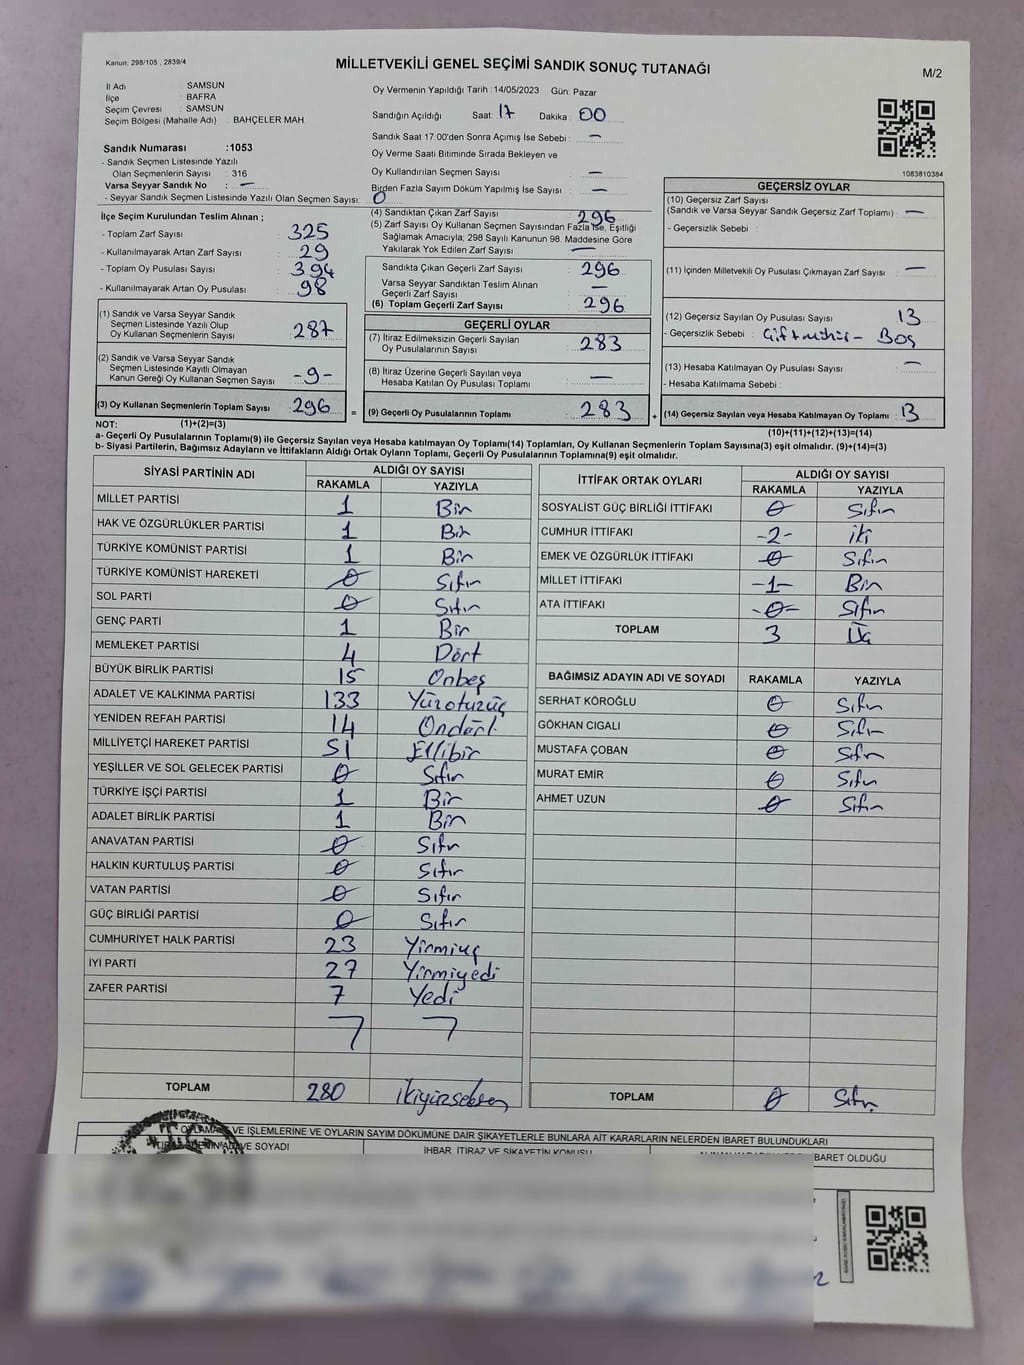 Kanun; 298/105 , 2839/4
MİLLETVEKİLİ GENEL SEÇİMİ SANDIK SONUÇ TUTANAĞI
M/2
İl Adı : SAMSUN
İlçe : BAFRA
Seçim Çevresi : SAMSUN
Seçim Bölgesi (Mahalle Adı) : BAHÇELER MAH.
Oy Vermenin Yapıldığı Tarih :14/05/2023 Gün: Pazar
Sandığın Açıldığı Saat: 17 Dakika : 00
Sandık Saat 17:00'den Sonra Açımış İse Sebebi : —
Oy Verme Saati Bitiminde Sırada Bekleyen ve
Oy Kullandırılan Seçmen Sayısı : —
Birden Fazla Sayım Döküm Yapılmış İse Sayısı : —
Sandık Numarası :1053
- Sandık Seçmen Listesinde Yazılı
Olan Seçmenlerin Sayısı : 316
Varsa Seyyar Sandık No : —
- Seyyar Sandık Seçmen Listesinde Yazılı Olan Seçmen Sayısı: 0
1083810384
İlçe Seçim Kurulundan Teslim Alınan ;
- Toplam Zarf Sayısı : 325
- Kullanılmayarak Artan Zarf Sayısı : 29
- Toplam Oy Pusulası Sayısı : 394
- Kullanılmayarak Artan Oy Pusulası : 98
(1) Sandık ve Varsa Seyyar Sandık
Seçmen Listesinde Yazılı Olup
Oy Kullanan Seçmenlerin Sayısı : 287
(2) Sandık ve Varsa Seyyar Sandık
Seçmen Listesinde Kayıtlı Olmayan
Kanun Gereği Oy Kullanan Seçmen Sayısı : -9-
(3) Oy Kullanan Seçmenlerin Toplam Sayısı : 296
(4) Sandıktan Çıkan Zarf Sayısı : 296
(5) Zarf Sayısı Oy Kullanan Seçmen Sayısından Fazla İse, Eşitliği
Sağlamak Amacıyla, 298 Sayılı Kanunun 98. Maddesine Göre
Yakılarak Yok Edilen Zarf Sayısı : —
Sandıkta Çıkan Geçerli Zarf Sayısı : 296
Varsa Seyyar Sandıktan Teslim Alınan
Geçerli Zarf Sayısı : —
(6) Toplam Geçerli Zarf Sayısı : 296
GEÇERLİ OYLAR
(7) İtiraz Edilmeksizin Geçerli Sayılan
Oy Pusulalarının Sayısı : 283
(8) İtiraz Üzerine Geçerli Sayılan veya
Hesaba Katılan Oy Pusulası Toplamı : —
= (9) Geçerli Oy Pusulalarının Toplamı : 283
GEÇERSİZ OYLAR
(10) Geçersiz Zarf Sayısı
(Sandık ve Varsa Seyyar Sandık Geçersiz Zarf Toplamı) : —
- Geçersizlik Sebebi :
(11) İçinden Milletvekili Oy Pusulası Çıkmayan Zarf Sayısı : —
(12) Geçersiz Sayılan Oy Pusulası Sayısı : 13
- Geçersizlik Sebebi : Çift mühür - Boş
(13) Hesaba Katılmayan Oy Pusulası Sayısı : —
- Hesaba Katılmama Sebebi :
+ (14) Geçersiz Sayılan veya Hesaba Katılmayan Oy Toplamı : 13
NOT: (1)+(2)=(3)
(10)+(11)+(12)+(13)=(14)
a- Geçerli Oy Pusulalarının Toplamı(9) ile Geçersiz Sayılan veya Hesaba katılmayan Oy Toplamı(14) Toplamları, Oy Kullanan Seçmenlerin Toplam Sayısına(3) eşit olmalıdır. (9)+(14)=(3)
b- Siyasi Partilerin, Bağımsız Adayların ve İttifakların Aldığı Ortak Oyların Toplamı, Geçerli Oy Pusulalarının Toplamına(9) eşit olmalıdır.
SİYASİ PARTİNİN ADI ALDIĞI OY SAYISI
RAKAMLA YAZIYLA
MİLLET PARTİSİ 1 Bir
HAK VE ÖZGÜRLÜKLER PARTİSİ 1 Bir
TÜRKİYE KOMÜNİST PARTİSİ 1 Bir
TÜRKİYE KOMÜNİST HAREKETİ 0 Sıfır
SOL PARTİ 0 Sıfır
GENÇ PARTİ 1 Bir
MEMLEKET PARTİSİ 4 Dört
BÜYÜK BİRLİK PARTİSİ 15 Onbeş
ADALET VE KALKINMA PARTİSİ 133 Yüzotuzüç
YENİDEN REFAH PARTİSİ 14 Ondört
MİLLİYETÇİ HAREKET PARTİSİ 51 Ellibir
YEŞİLLER VE SOL GELECEK PARTİSİ 0 Sıfır
TÜRKİYE İŞÇİ PARTİSİ 1 Bir
ADALET BİRLİK PARTİSİ 1 Bir
ANAVATAN PARTİSİ 0 Sıfır
HALKIN KURTULUŞ PARTİSİ 0 Sıfır
VATAN PARTİSİ 0 Sıfır
GÜÇ BİRLİĞİ PARTİSİ 0 Sıfır
CUMHURİYET HALK PARTİSİ 23 Yirmiüç
İYİ PARTİ 27 Yirmiyedi
ZAFER PARTİSİ 7 Yedi
TOPLAM 280 İkiyüzseksen
İTTİFAK ORTAK OYLARI ALDIĞI OY SAYISI
RAKAMLA YAZIYLA
SOSYALİST GÜÇ BİRLİĞİ İTTİFAKI 0 Sıfır
CUMHUR İTTİFAKI -2- iki
EMEK VE ÖZGÜRLÜK İTTİFAKI 0 Sıfır
MİLLET İTTİFAKI -1- Bir
ATA İTTİFAKI -0- Sıfır
TOPLAM 3 Üç
BAĞIMSIZ ADAYIN ADI VE SOYADI RAKAMLA YAZIYLA
SERHAT KÖROĞLU 0 Sıfır
GÖKHAN CIGALI 0 Sıfır
MUSTAFA ÇOBAN 0 Sıfır
MURAT EMİR 0 Sıfır
AHMET UZUN 0 Sıfır
TOPLAM 0 Sıfır
VE İŞLEMLERİNE VE OYLARIN SAYIM DÖKÜMÜNE DAİR ŞİKAYETLERLE BUNLARA AİT KARARLARIN NELERDEN İBARET BULUNDUKLARI
VE SOYADI
İHBAR, İTİRAZ VE ŞİKAYETİN KONUSU
İBARET OLDUĞU